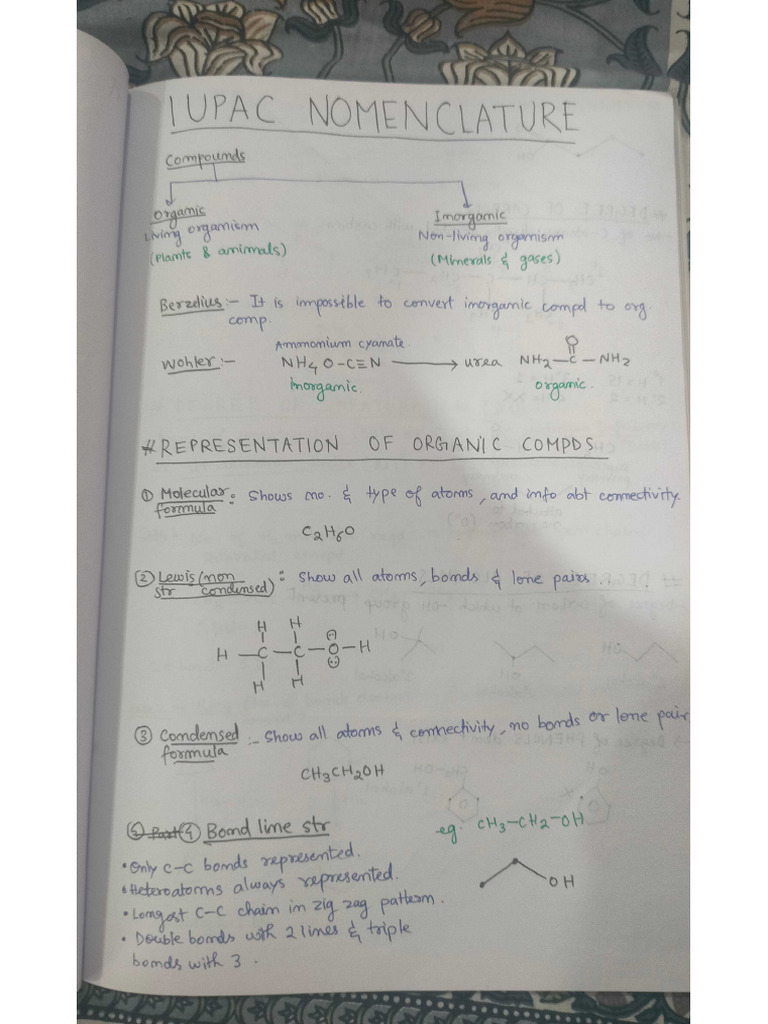 IUPAC NOMENCLATURE
Compounds
Organic
Living organism
(Plants & animals)
Inorganic
Non-living organism
(Minerals & gases)
Berzelius:- It is impossible to convert inorganic compd to org.
comp.
Ammonium cyanate
Wohler:- NH4 O-C≡N ⟶ urea NH2-C-NH2
O
inorganic.
organic.
#REPRESENTATION OF ORGANIC COMPDS
① Molecular formula : Shows no. & type of atoms, and info abt connectivity.
C2H6O
② Lewis (non
str condensed) : Show all atoms, bonds & lone pairs.
H H
H-C-C-O-H
H H
③ Condensed formula :- Show all atoms & connectivity, no bonds or lone pair
CH3CH2OH
④ Bond line str
eg. CH3-CH2-OH
• Only C-C bonds represented.
• Heteroatoms always represented.
OH
• Longest C-C chain in zig zag pattern.
• Double bonds with 2 lines & triple
bonds with 3.